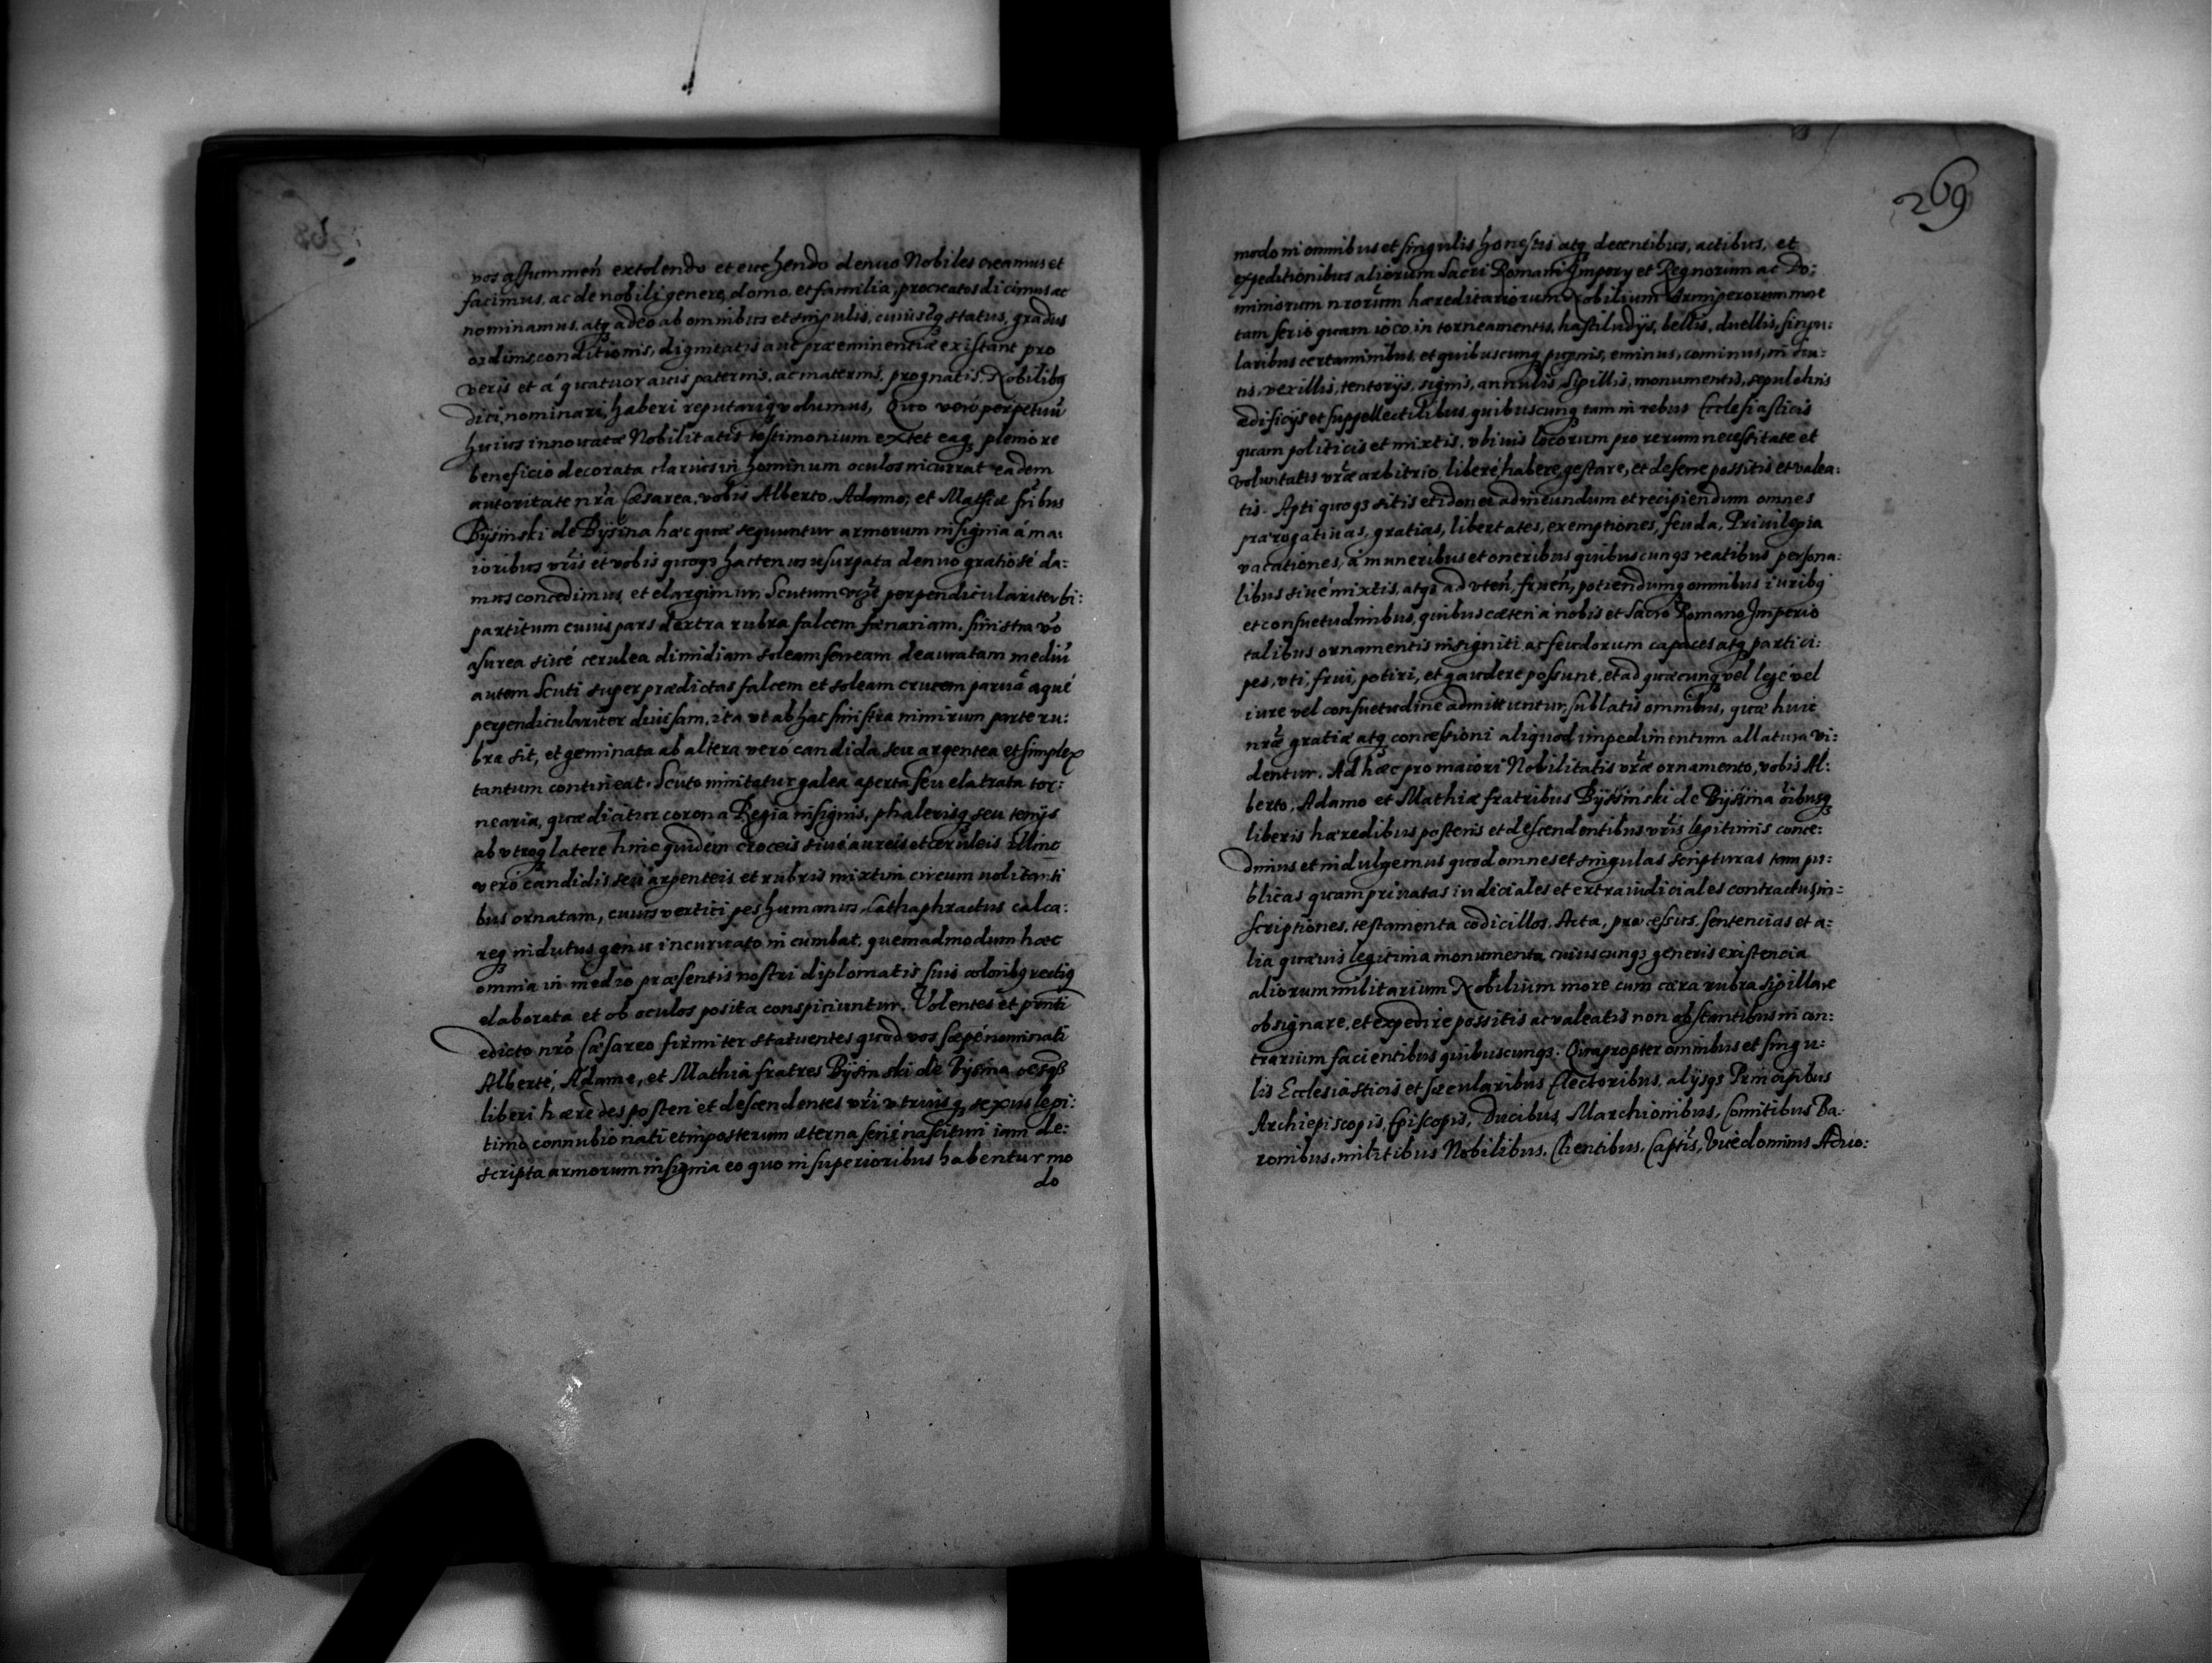 vos assummen̄ extolendo et euehendo denuo Nobiles creamus et
facimus, ac de nobili genere, domo, et familia, procreatos dicimus ac
nominamus, atq̃ adeo ab omnibus et singulis, cuiuscq̃ status, gradus
ordinis, conditionis, dignitatis aut præeminentiæ existant pro
veris et á quatuor auis paternis, ac maternis, prognatis, Nobilibq
dici, nominari, haberi reputariq̃ volumus, Quo vero perpetuū
huius innouatæ Nobilitatis testimonium extet eaq̃ pleniore
beneficio decorata clarius in hominum oculos incurrat eadem
autoritate nr̃a Cæsarea, vobis Alberto, Adamo, et Mathiæ fr̃ibus
Bÿsinski de Bÿsina hæc quæ sequuntur armorum insignia á ma:
ioribus vr̃is et vobis quoqȝ hactenus usurpata denuo gratiosé da:
mus concedimus et elargimur Scutum vizt̃ perpendiculariter bi:
partitum cuius pars dextra rubra falcem fœnariam, sinistra vo̅
asurea siué cerulea dimidiam soleam ferream deauratam mediū
autem Scuti super prædictas falcem et soleam crucem paruā aqué
perpendiculariter diuisam, ita vt ab hac sinistra nimirum parte ru:
bra sit, et geminata ab altera veró candida seu argentea et simplex
tantum contineat. Scuto innitatur galea aperta seu elatrata tor:
nearia, quæ dicitur corona Regia insignis, phalerisq̃ seu tenijs
ab vtroq̃ latere hinc quidem croceis siué aureis et cæruleis illinc
vero candidis seu argenteis et rubris mixtim circum uolitanti
bus ornatam, cuius vertici pes humanus Cathaphractus calca:
req̃ indutus genu incuruato incumbat, quemadmodum hæc
omnia in medio præsentis nostri diplomatis suis coloribq rectiq̃
elaborata et ob oculos posita conspiciuntur. Volentes et pr̃nti
edicto nr̃o Cæsareo firmiter statuentes quod vos sæpé nominati
Alberté, Adame, et Mathia fratres Bÿsinski de Bÿsina
liberi hæredes posteri et descendentes vr̃i vtriusq̃ sexus legi:
timo connubio nati et inposterum æterna serié nascituri iam de:
scripta armorum insignia eo quo in superioribus habentur mo
do
269
modo in omnibus et singulis honestis atq̃ decentibus, actibus, et
expeditionibus aliorum Sacri Romani Imperÿ et Regnorum ac Do:
miniorum nr̃orum hæreditariorum Nobilium Armigerorum more
tam serio quam ioco, in torneamentis, hastiludÿs, bellis, duellis, singu:
laribus certaminibus, et quibuscunq̃ pugnis, eminus, cominus, in scu:
tis, vexillis, tentorÿs, signis, annulis, Sigillis, monumentis, sepulchris
ædificÿs et suppellectilibus, quibuscunq̃ tam in rebus Ecclesiasticis
quam politicis et mixtis, vbiuis locorum pro rerum necessitate et
voluntatis vr̃æ arbitrio, liberé habere, gestare, et deferre possitis et valea:
tis. Apti quoqȝ sitis et idonei ad ineundum et recipiendum omnes
prærogatiuas, gratias, libertates, exemptiones, feuda, Priuilegia
vacationes, á muneribus et oneribus quibuscunqȝ realibus persona:
libus siué mixtis, atqȝ ad vten̄, fruen̄, potiendumq̃ omnibus iuribq
et consuetudinibus, quibus cæteri á nobis et Sacro Romano Imperio
talibus ornamentis insigniti, ac feudorum capaces atq̃ partici:
pes, vti, frui, potiri, et gaudere possunt, et ad quæcunq̃ vel legé vel
iure vel consuetudine admittuntur, sublatis omnibus, quæ huic
nr̃æ gratiæ atq̃ concessioni aliquod impedimentum allatura vi:
dentur. Ad hæc pro maiori Nobilitatis vr̃æ ornamento, vobis Al:
berto, Adamo et Mathiæ fratribus Bÿsinski de Bÿsina õibusq̃
liberis hæredibus posteris et descendentibus vr̃is legitimis conce:
dimus et indulgemus quod omnes et singulas scripturas tam pu:
blicas quam priuatas iudiciales et extraiudiciales contractus, in:
scriptiones, testamenta codicillos, Acta, processus, sentencias et a:
lia quæuis legitima monumenta cuiuscunqȝ generis existencia
aliorum militarium Nobilium more cum cæra rubra Sigillare
obsignare, et expedire possitis ac valeatis non obstantibus in con:
trarium facientibus quibuscunqȝ. Quapropter omnibus et singu:
lis Ecclesiasticis et sæcularibus Electoribus, alÿsqȝ Principibus
Archiepiscopis, Episcopis, Ducibus, Marchionibus, Comitibus Ba:
ronibus, militibus Nobilibus, Clientibus, Capt̃is, Vicedominis Aduo: